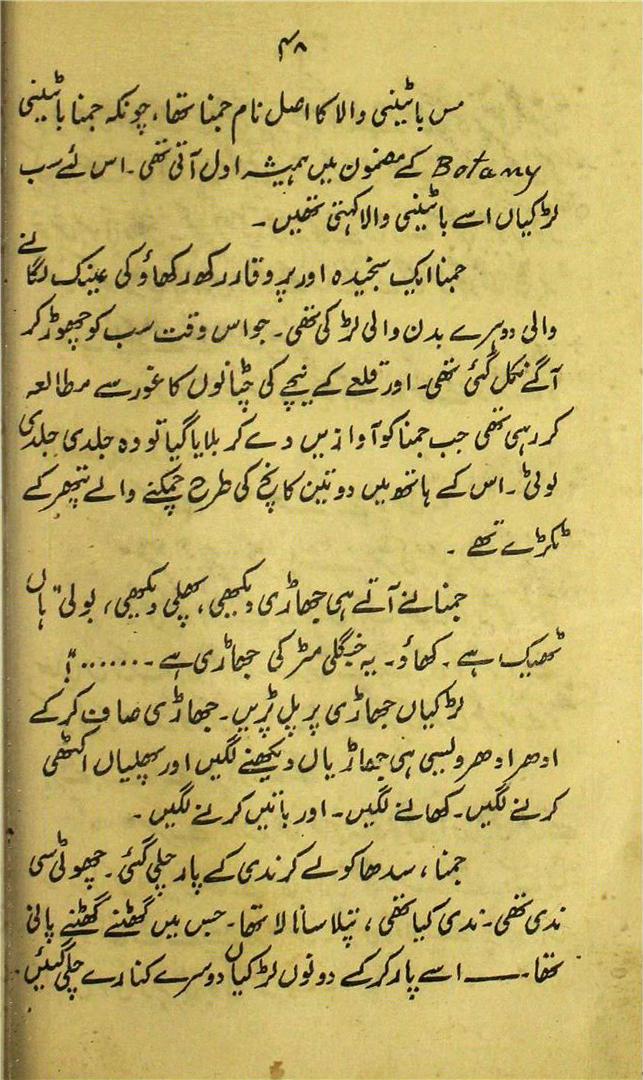 ۴۸
مس باٹینی والا کا اصل نام جمنا تھا، چونکہ جمنا باٹینی
Botany کے مضمون میں ہمیشہ اول آتی تھی۔ اس لئے سب
لڑکیاں اسے باٹینی والا کہتی تھیں۔
جمنا ایک سنجیدہ اور پر وقار رکھ رکھاؤ کی عینک لگانے
والی دوہرے بدن والی لڑکی تھی۔ جو اس وقت سب کو چھوڑ کر
آگے نکل گئی تھی۔ اور قلعے کے نیچے کی چٹانوں کا غور سے مطالعہ
کر رہی تھی جب جمنا کو آوازیں دے کر بلایا گیا تو وہ جلدی جلدی
لوٹی۔ اس کے ہاتھ میں دو تین کانچ کی طرح چمکنے والے پتھر کے
ٹکڑے تھے۔
جمنا نے آتے ہی جھاڑی دیکھی، پھلی دیکھی، بولی "ہاں
ٹھیک ہے۔ کھاؤ۔ یہ جنگلی مٹر کی جھاڑی ہے۔......"
لڑکیاں جھاڑی پر پل پڑیں۔ جھاڑی صاف کر کے
ادھر ادھر ویسی ہی جھاڑیاں دیکھنے لگیں اور پھلیاں اکٹھی
کرنے لگیں۔ کھانے لگیں۔ اور باتیں کرنے لگیں۔
جمنا، سدھا کو لے کر ندی کے پار چلی گئی۔ چھوٹی سی
ندی تھی۔ ندی کیا تھی، پتلا سا نالا تھا۔ جس میں گھٹنے گھٹنے پانی
تھا۔ —— اسے پار کر کے دونوں لڑکیاں دوسرے کنارے چلی گئیں۔